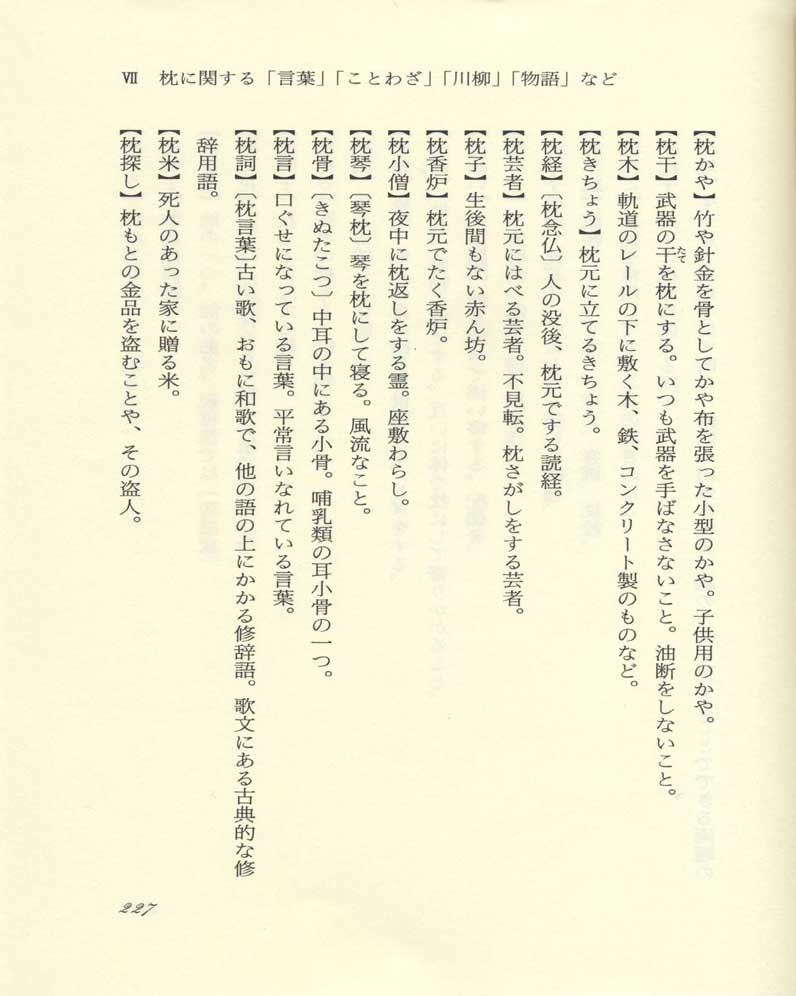 Ⅶ　枕に関する「言葉」「ことわざ」「川柳」「物語」など
【枕かや】竹や針金を骨としてかや布を張った小型のかや。子供用のかや。
【枕干】武器の干(たて)を枕にする。いつも武器を手ばなさないこと。油断をしないこと。
【枕木】軌道のレールの下に敷く木、鉄、コンクリート製のものなど。
【枕きちょう】枕元に立てるきちょう。
【枕経】〔枕念仏〕人の没後、枕元でする読経。
【枕芸者】枕元にはべる芸者。不見転。枕さがしをする芸者。
【枕子】生後間もない赤ん坊。
【枕香炉】枕元でたく香炉。
【枕小僧】夜中に枕返しをする霊。座敷わらし。
【枕琴】〔琴枕〕琴を枕にして寝る。風流なこと。
【枕骨】〔きぬたこつ〕中耳の中にある小骨。哺乳類の耳小骨の一つ。
【枕言】口ぐせになっている言葉。平常言いなれている言葉。
【枕詞】〔枕言葉〕古い歌、おもに和歌で、他の語の上にかかる修辞語。歌文にある古典的な修
辞用語。
【枕米】死人のあった家に贈る米。
【枕探し】枕もとの金品を盗むことや、その盗人。
227